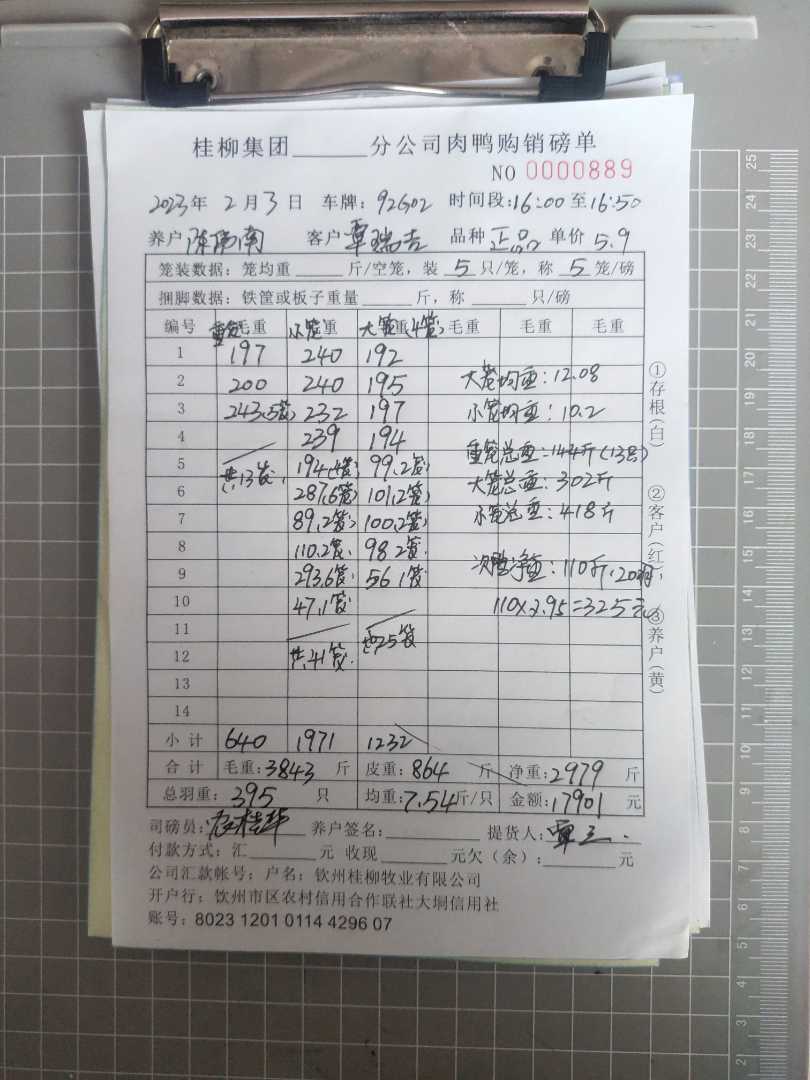 桂柳集团______分公司肉鸭购销磅单
NO 0000889
2023年 2月3日 车牌:92G02 时间段:16:00至16:50
养户 陈 南 客户 覃瑞吉 品种 正品 单价 5.9
笼装数据:笼均重______斤/空笼,装 5 只/笼,称 5 笼/磅
捆脚数据:铁筐或板子重量______斤,称______只/磅
编号 重笼毛重 小笼毛重 大笼毛重(4笼) 毛重 毛重 毛重
1 197 240 192
2 200 240 195 大笼均重:12.08
3 243.5笼 232 197 小笼均重:10.2
4 239 194 重笼总重:144斤(13只)
5 共13笼. 194.4笼 99.2笼 大笼总重:302斤
6 287.6笼 101.2笼 小笼总重:418斤
7 89.2笼 100.2笼
8 110.2笼 98 2笼.
9 293.6笼 56 1笼 次鸭净重:110斤.20羽.
10 47.1笼 110×2.95=325元
11
12 共41笼. 共25笼
13
14
小计 640 1971 1232
合计 毛重:3843 斤 皮重:864 斤 净重:2979 斤
总羽重:395 只 均重:7.54斤/只 金额:17901 元
司磅员: 养户签名:________ 提货人:覃三.
付款方式:汇______元 收现______元欠(余):______元
公司汇款帐号:户名:钦州桂柳牧业有限公司
开户行:钦州市区农村信用合作联社大垌信用社
账号:8023 1201 0114 4296 07
①存根(白) ②客户(红) ③养户(黄)
25
20
15
10
5
4
3
2